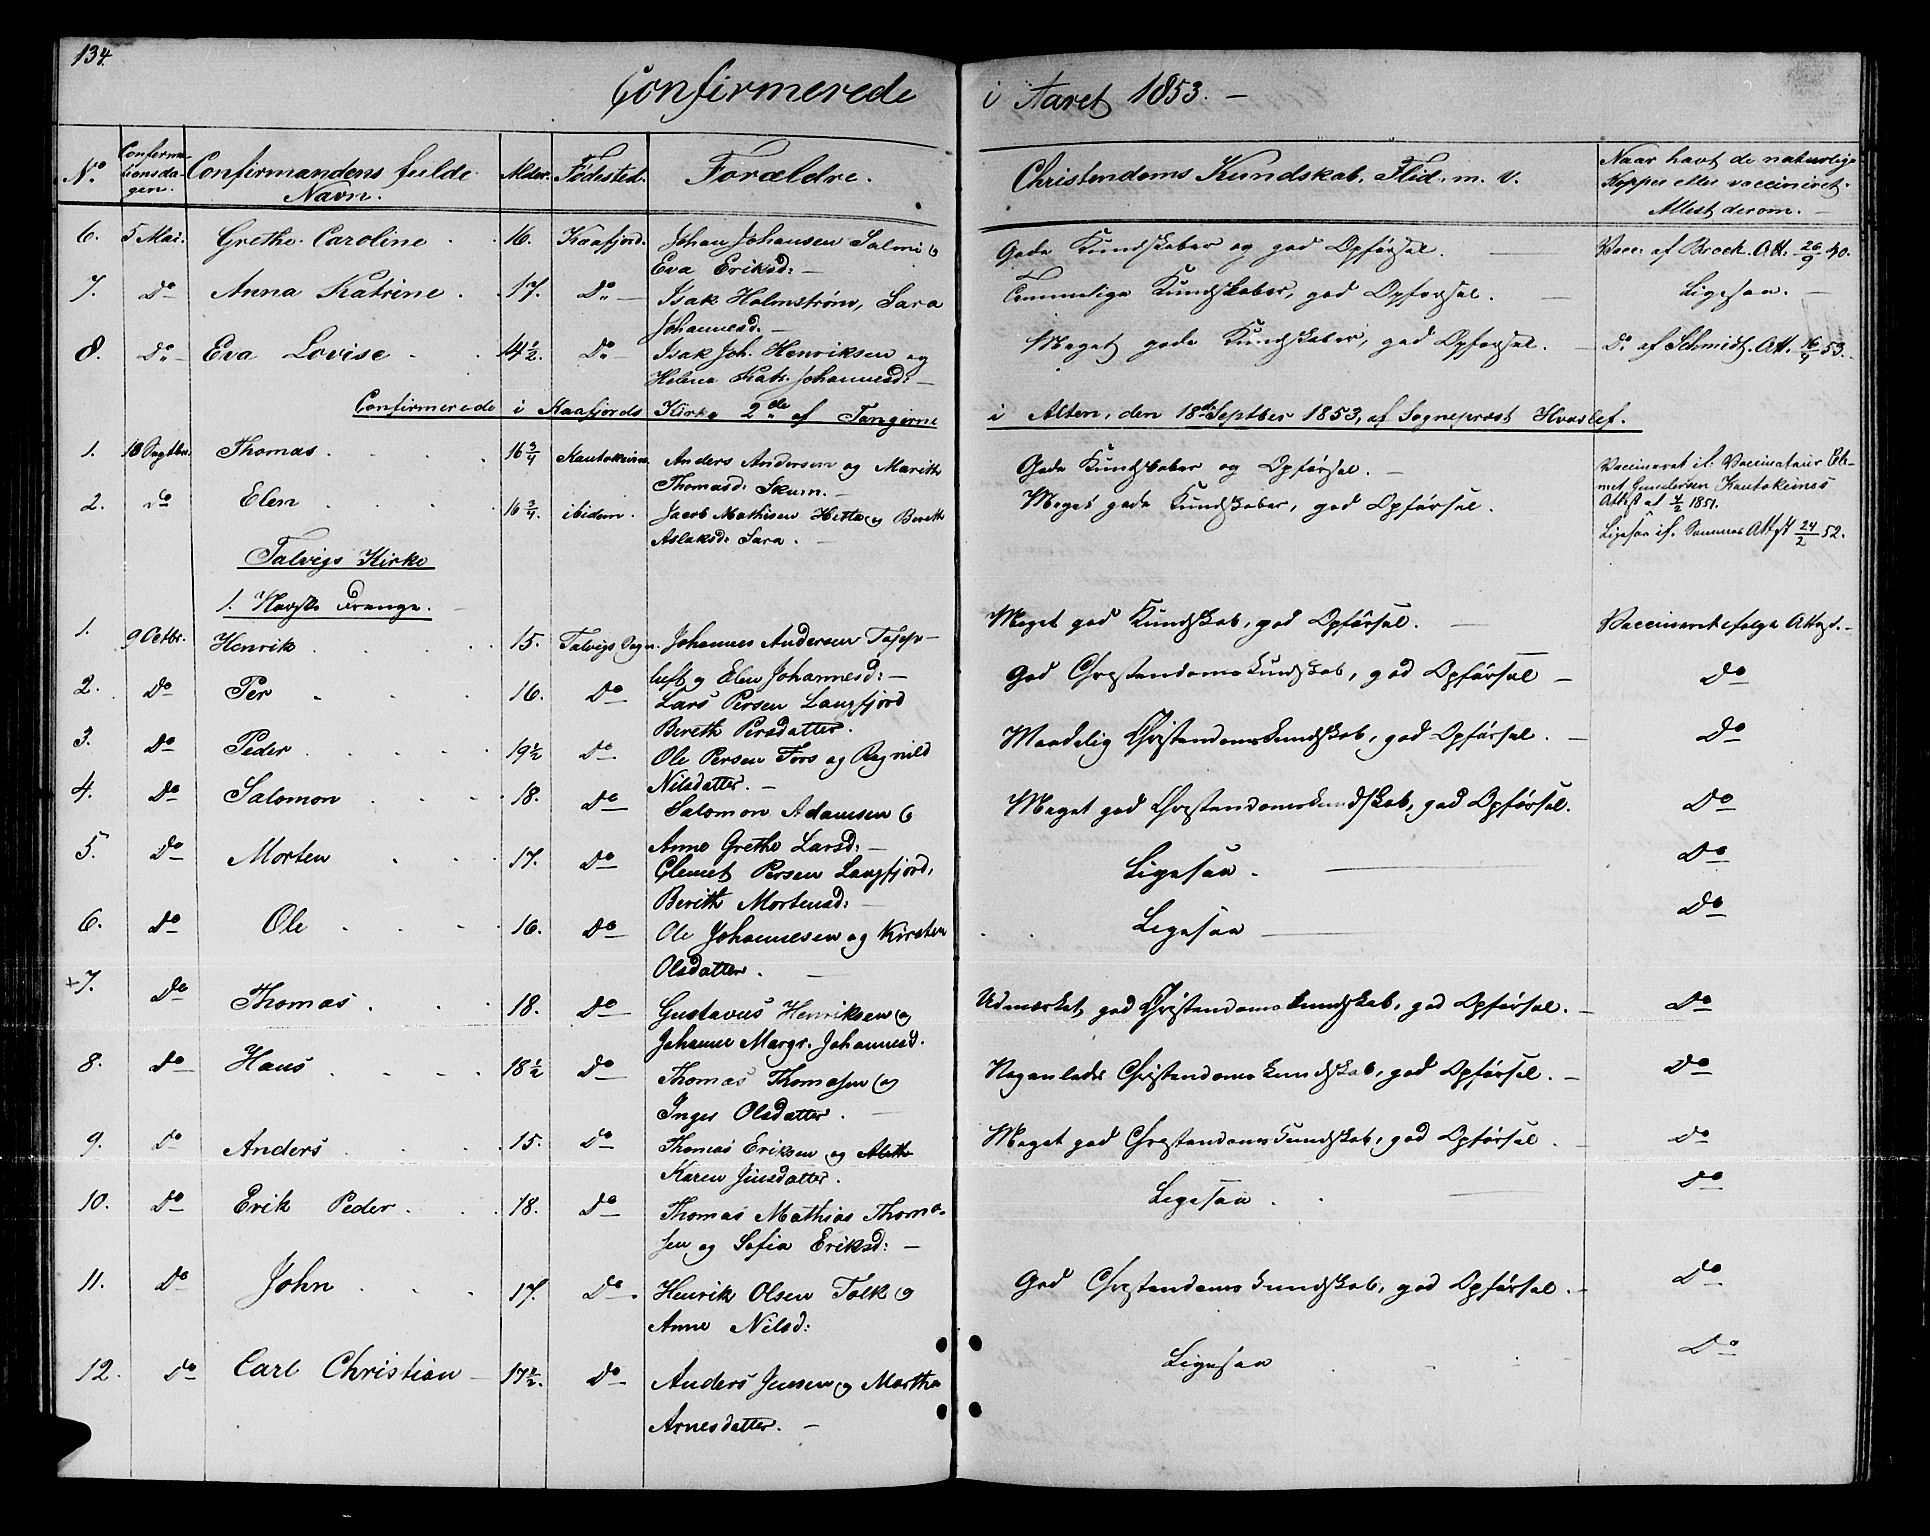 134.
Confirmerede i Aaret 1853. –
No. Confirmationsdagen. Confirmandens fulde Navn. Alder. Fødested. Forældre. Christendoms Kundskab, Flid. m. v. Naar havt de naturlige Kopper eller vaccineret. Attest derom. –
6. 5 Mai. Grethe Caroline 16. Kaafjord. Johan Johansen Salmi og Gode Kundskaber og god Opførsel. Vacc. af Brock. Att. 26/9 40.
Eva Eriksd: –
7. Do Anna Katrine. 17. Do Isak Holmstrøm, Sara Temmelige Kundskaber, god Opførsel. – Ligesaa. –
Johannesd. –
8. Do Eva Lovise 14 1/2. Do Isak Joh. Henriksen og Meget gode Kundskaber, god Opførsel. – Do af Schmidt. Att. 53.
Helena Katr. Johannesd: –
Confirmerede i Kaafjords Kirke 2de af Tangerne i Alten, den 18de Septber 1853, af Sogneprest Hvoslef.
1. 18 Septbr. Thomas. 16 3/4 Kautokeino Anders Andersen og Marith Gode Kundskaber og Opførsel. – Vaccineret if. Vaccinateur Cle-
Thomasd: Skum. – met Gundersen Kautokeinos
Attest af 4/2 1851.
2. Do Elen 16 3/4. ibidem. Jacob Mathisen Hetta og Bereth Meget gode Kundskaber, god Opførsel. Ligesaa if. Sammes Attst 24/2 52.
Aslaksd: Sara.
Talvigs Kirke
1. Norske Drenge.
1. 9 Octbr. Henrik 15. Talvigs Sogn. Johannes Andersen Topp- Meget god Kundskab, god Opførsel. – Vaccineret ifølge Attest. –
luft og Elen Johannesd: –
2. Do Per 16. Do Lars Persen Langfjord God Christendomskundskab, god Opførsel – Do
Bereth Persdatter.
3. Do Peder 19 1/2 Do Ole Persen Fors og Ragnild Maadelig Christendomskundskab, god Opførsel. – Do
Nilsdatter. –
4. Do Salomon 18. Do Salomon Adamsen og Meget god Christendomskundskab, god Opførsel. Do
Anne Grethe Larsd: –
5. Do Morten 17. Do Clemet Persen Langfjord, Ligesaa. Do
Berith Mortensd: –
6. Do Ole 16. Do Ole Johannesen og Kirsten Ligesaa Do
Olsdatter. –
+7. Do Thomas 18. Do Gustavus Henriksen og Udmærket god Christendomskundskab, god Opførsel. – Do
Johanne Margr. Johannesd.
8. Do Hans 18 1/2 Do Thomas Thomasen og Nogenledes Christendomskundskab, god Opførsel. – Do
Inger Olsdatter. –
9. Do Anders 15. Do Thomas Eriksen og Meget god Christendomskundskab, god Opførsel. – Do
Karen Jensdatter.
10. Do Erik Peder 18. Do Thomas Mathias Thoma- Ligesaa. Do
sen og Sofia Eriksd: –
11. Do John 17. Do Henrik Olsen Tolk og God Christendomskundskab, god Opførsel. – Do
Anne Nilsd:
12. Do Carl Christian 17 1/2. Do Anders Jensen og Martha Ligesaa Do
Arnesdatter. –